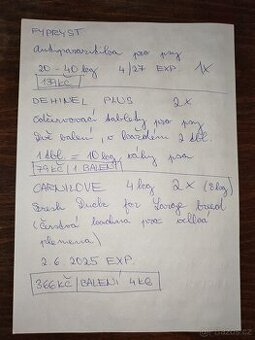 FYPRYST
Antiparazitika pro psy
20 - 40 kg 4/27 EXP. 1x
179KČ
DEHINEL PLUS 2x
Odčervovací tablety pro psy
Dvě balení, v každém 2 tbl.
1 tbl = 10 kg váhy psa
79KČ | 1 BALENÍ
CARNILOVE 4 kg 2x (8kg)
Fresh Duck for Large breed
(čerstvá kachna pro velká
plemena)
2.6.2025 EXP
366KČ | BALENÍ 4KG